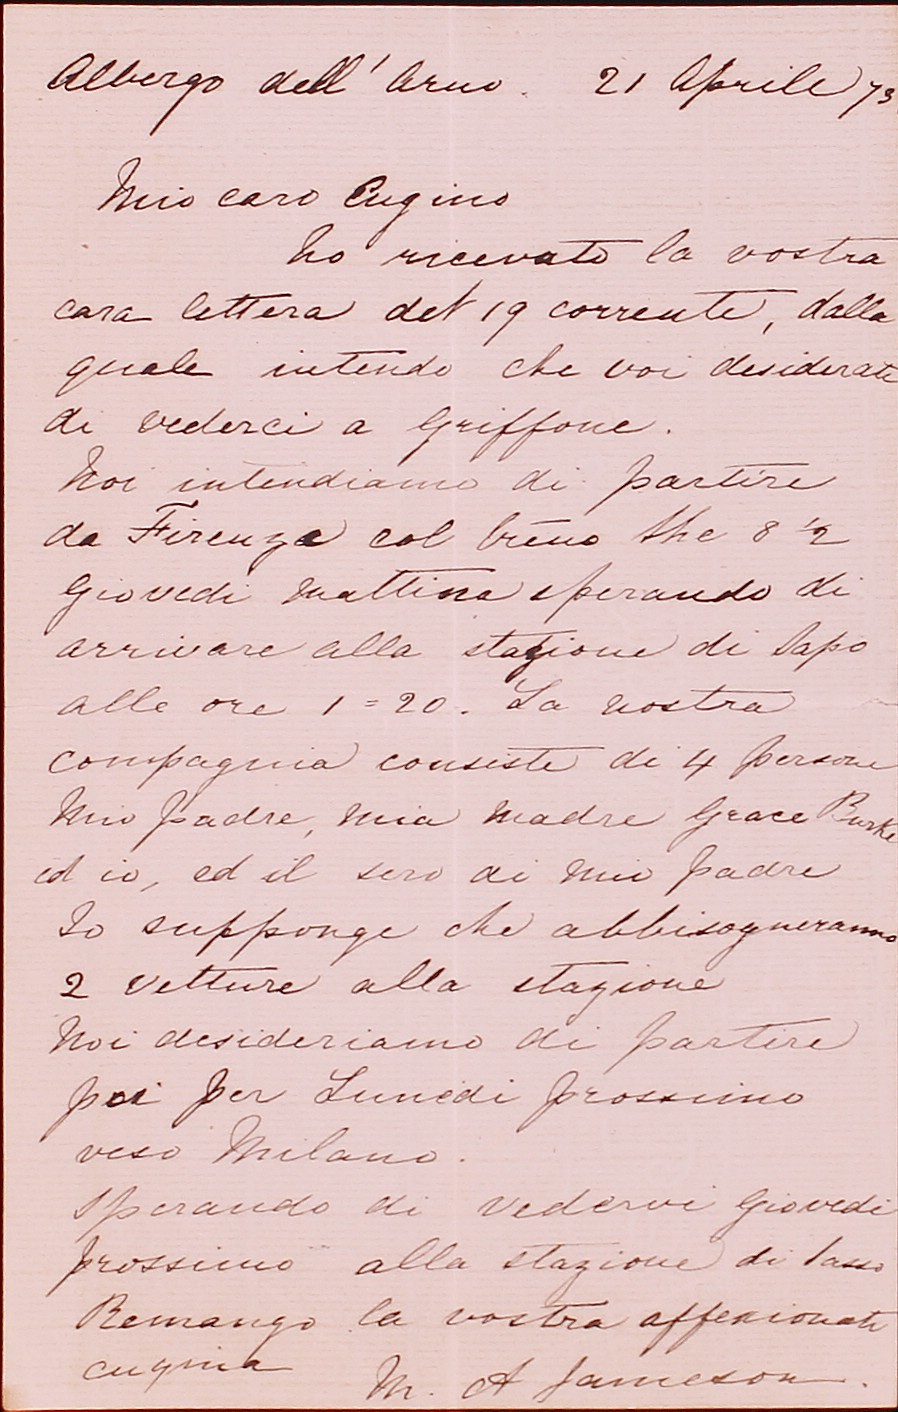 Albergo dell' Arno. 21 Aprile 73
Mio caro Cugino
ho ricevuto la vostra
cara lettera del 19 corrente, dalla
quale intendo che voi desiderate
di vederci a Griffone.
Noi intendiamo di partire
da Firenze col treno the 8 ½
Giovedi mattina sperando di
arrivare alla stazione di Sapo
alle ore 1=20. La nostra
compagnia consiste di 4 persone
Mio padre, mia madre Grace Burke
ed io, ed il sero di mio padre
Io suppongo che abbisogneranno
2 vetture alla stazione
Noi desideriamo di partire
poi per Lunedi prossimo
veso Milano.
Sperando di vedervi Giovedi
prossimo alla stazione di Sasso
Remango la vostra affexionate
cugina
M. A Jameson.